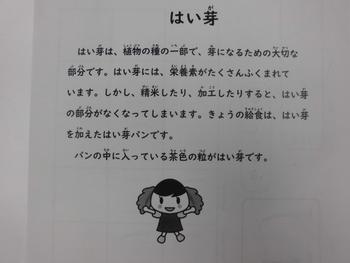 はい芽
はい芽は、植物の種の一部で、芽になるための大切な
部分です。はい芽には、栄養素がたくさんふくまれて
います。しかし、精米したり、加工したりすると、はい芽
の部分がなくなってしまいます。きょうの給食は、はい芽
を加えたはい芽パンです。
パンの中に入っている茶色の粒がはい芽です。